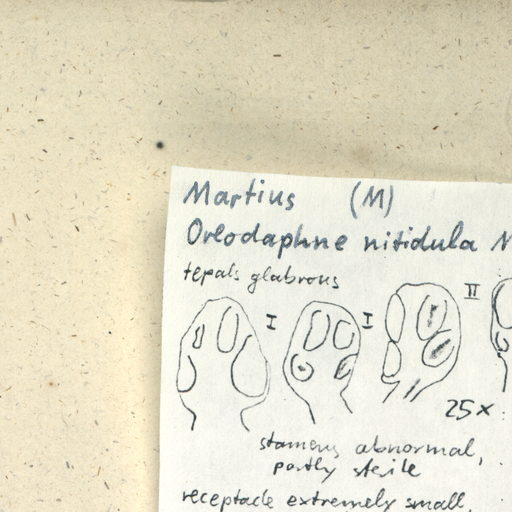 Martius (M)
Oreodaphne nitidula N
tepals glabrous
I I II
25x
stamens abnormal,
partly sterile
receptacle extremely small,